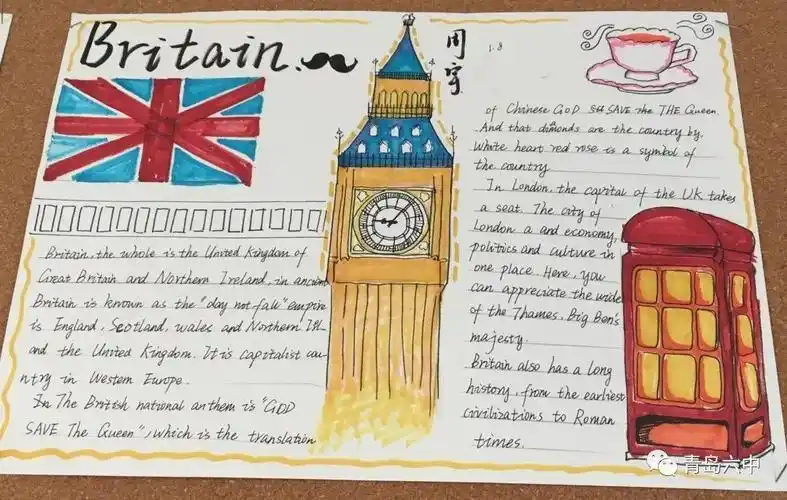 Britain.
周宇
1.8
Britain, the whole is the United Kingdom of
Great Britain and Northern Ireland, in ancient
Britain is known as the "day not fall" empire
is England, Scotland, wales and Northern
and the United Kingdom. It is capitalist cou-
ntry in Western Europe.
In The British national anthem is "GOD
SAVE The Queen", which is the translation
of Chinese GOD SAVE the THE Queen.
And that dimonds are the country by,
White heart red rose is a symbol of
the country
In London, the capital of the UK takes
a seat. The city of
London a and economy,
politics and culture in
one place. Here, you
can appreciate the wide
of the Thames, Big Ben's
majesty.
Britain also has a long
history, from the earliest
civilizations to Roman
times.
青岛六中